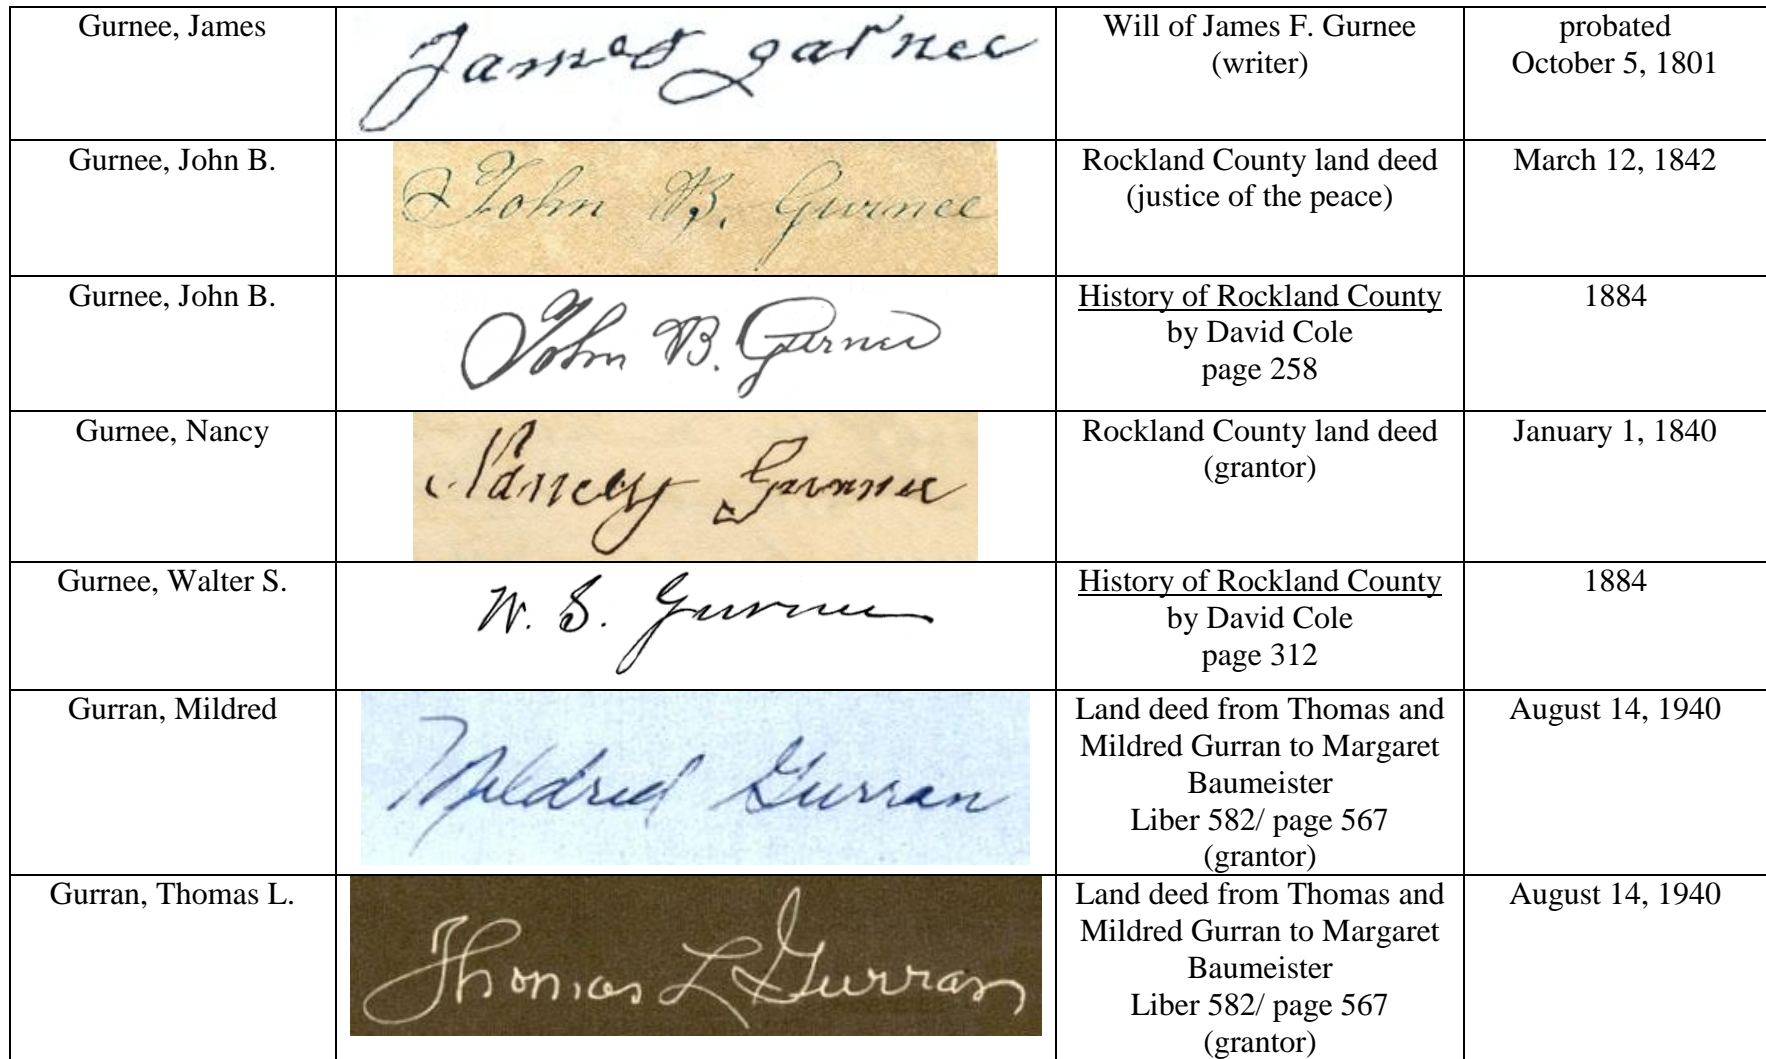 Gurnee, James
James garnee
Will of James F. Gurnee
(writer)
probated
October 5, 1801
Gurnee, John B.
John B. Gurnee
Rockland County land deed
(justice of the peace)
March 12, 1842
Gurnee, John B.
John B. Gurnee
History of Rockland County
by David Cole
page 258
1884
Gurnee, Nancy
Nancy Gurnee
Rockland County land deed
(grantor)
January 1, 1840
Gurnee, Walter S.
W. S. Gurnee
History of Rockland County
by David Cole
page 312
1884
Gurran, Mildred
Mildred Gurran
Land deed from Thomas and
Mildred Gurran to Margaret
Baumeister
Liber 582/ page 567
(grantor)
August 14, 1940
Gurran, Thomas L.
Thomas L Gurran
Land deed from Thomas and
Mildred Gurran to Margaret
Baumeister
Liber 582/ page 567
(grantor)
August 14, 1940